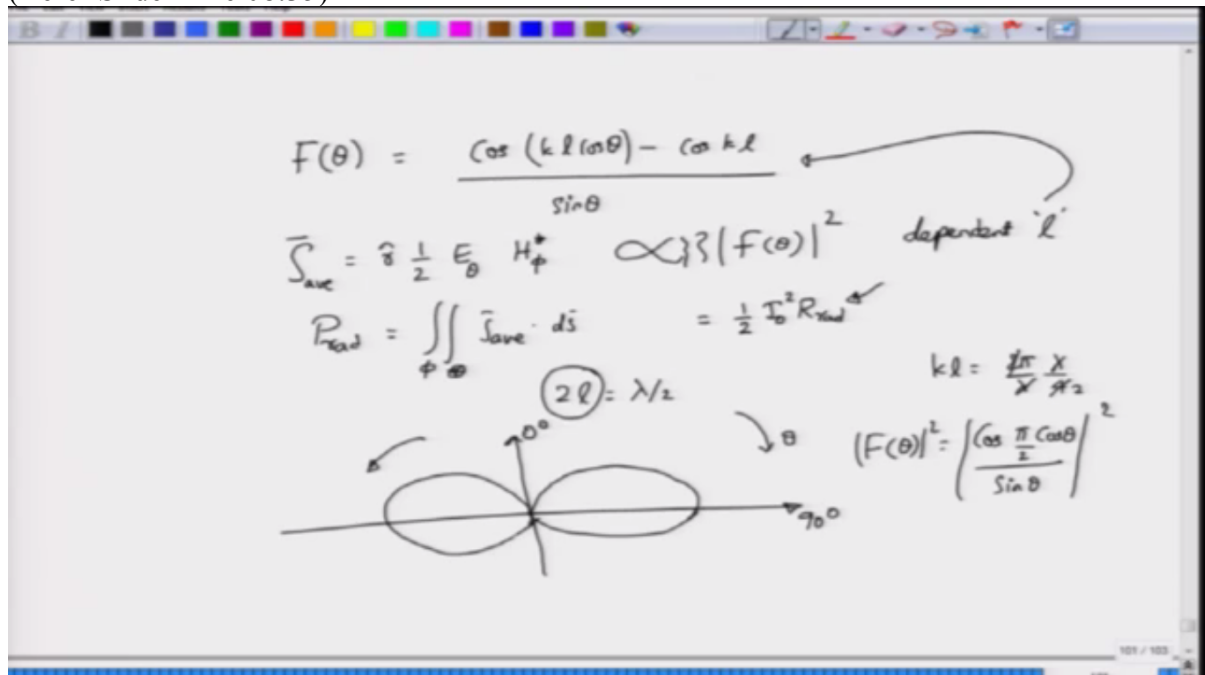 F(θ) = cos (k l cosθ) – cos k l / sinθ
S̄ave = r̂ 1/2 Eθ Hφ* ∝ |F(θ)|² dependent 'l'
Prad = ∬ S̄ave · ds̄ = 1/2 I₀² Rrad
φ θ
2l = λ/2
kl = 2π/λ λ/4 2
0°
θ
|F(θ)|² = |Cos π/2 Cosθ / Sinθ|²
90°
101 / 103